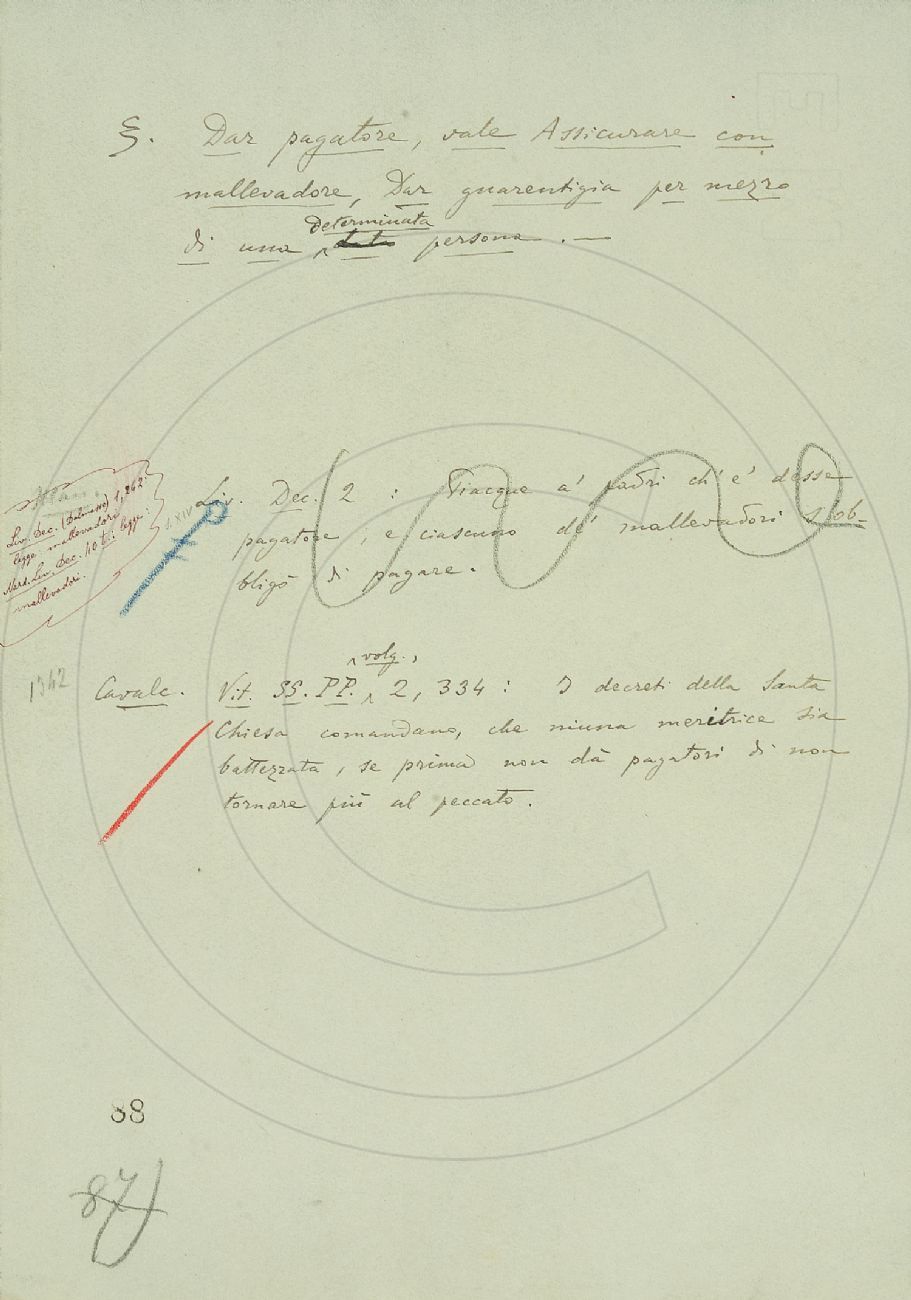 §. Dar pagatore, vale Assicurare con
mallevadore, Dar guarentigia per mezzo
determinata
di una persona. —
Liv. Dec. (Dalmazzo) 1, 262:
legge mallevadori
Nard. Liv. Dec. 40 t.: legge:
mallevadori.
S. XIV
Liv. Dec. 2 : Piacque a' padri ch' e' desse
pagatore, e ciascuno de' mallevadori s' ob-
bligò di pagare.
1342
volg.,
Cavalc. Vit. SS. PP. 2, 334: I decreti della Santa
Chiesa comandano, che niuna meritrice sia
battezzata, se prima non dà pagatori di non
tornare più al peccato.
88
87